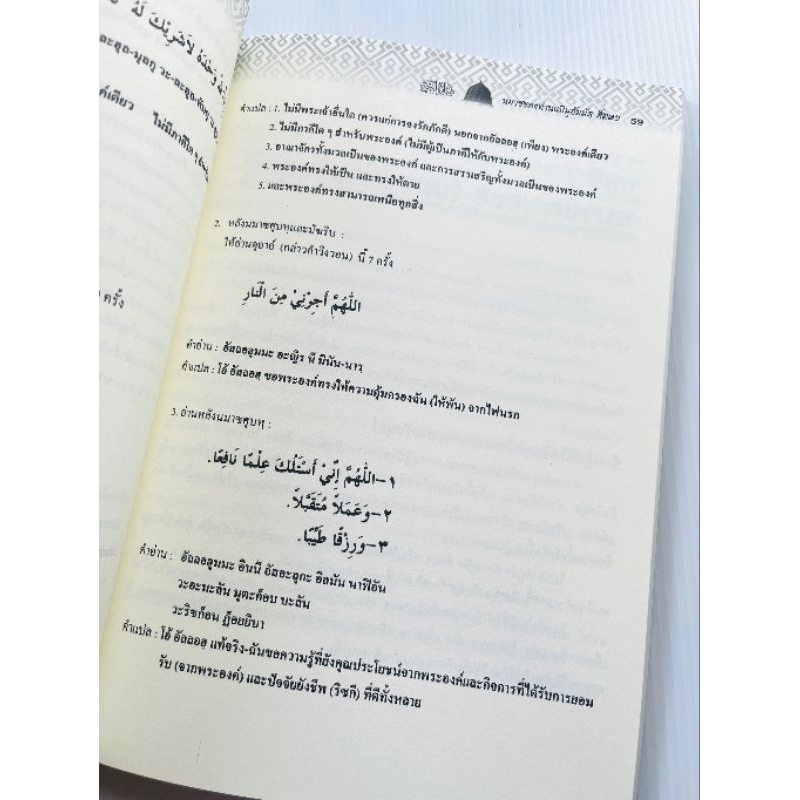 นมาซของท่านนบีมูฮัมมัด 59
คำแปล : 1. ไม่มีพระเจ้าอื่นใด (ควรแก่การจงรักภักดี) นอกจากอัลลอฮฺ (เพียง) พระองค์เดียว
2. ไม่มีภาคีใด ๆ สำหรับพระองค์ (ไม่มีผู้เป็นภาคีให้กับพระองค์)
3. อาณาจักรทั้งมวลเป็นของพระองค์ และการสรรเสริญทั้งมวลเป็นของพระองค์
4. พระองค์ทรงให้เป็น และทรงให้ตาย
5. และพระองค์ทรงสามารถเหนือทุกสิ่ง
2. หลังนมาซศุบหฺและมัฆริบ :
ให้อ่านดุอาอ์ (กล่าวคำวิงวอน) นี้ 7 ครั้ง
اَللّٰهُمَّ أَجِرْنِيْ مِنَ النَّارِ
คำอ่าน : อัลลอฮุมมะ อะญิร นี มินัน-นารฺ
คำแปล : โอ้ อัลลอฮฺ ขอพระองค์ทรงให้ความคุ้มครองฉัน (ให้พ้น) จากไฟนรก
3. อ่านหลังนมาซศุบหฺ :
١-اَللّٰهُمَّ إِنِّيْ أَسْئَلُكَ عِلْمًا نَافِعًا.
٢-وَعَمَلاً مُتَقَبَّلاً.
٣-وَرِزْقًا طَيِّبًا.
คำอ่าน : อัลลอฮุมมะ อินนี อัสอะลุกะ อิลมัน นาฟิอัน
วะอะมะลัน มุตะก็อบ บะลัน
วะริซก็อน ฏ็อยยิบา
คำแปล : โอ้ อัลลอฮฺ แท้จริง-ฉันขอความรู้ที่ยังคุณประโยชน์จากพระองค์และกิจการที่ได้รับการยอม
รับ (จากพระองค์) และปัจจัยยังชีพ (ริซกี) ที่ดีทั้งหลาย